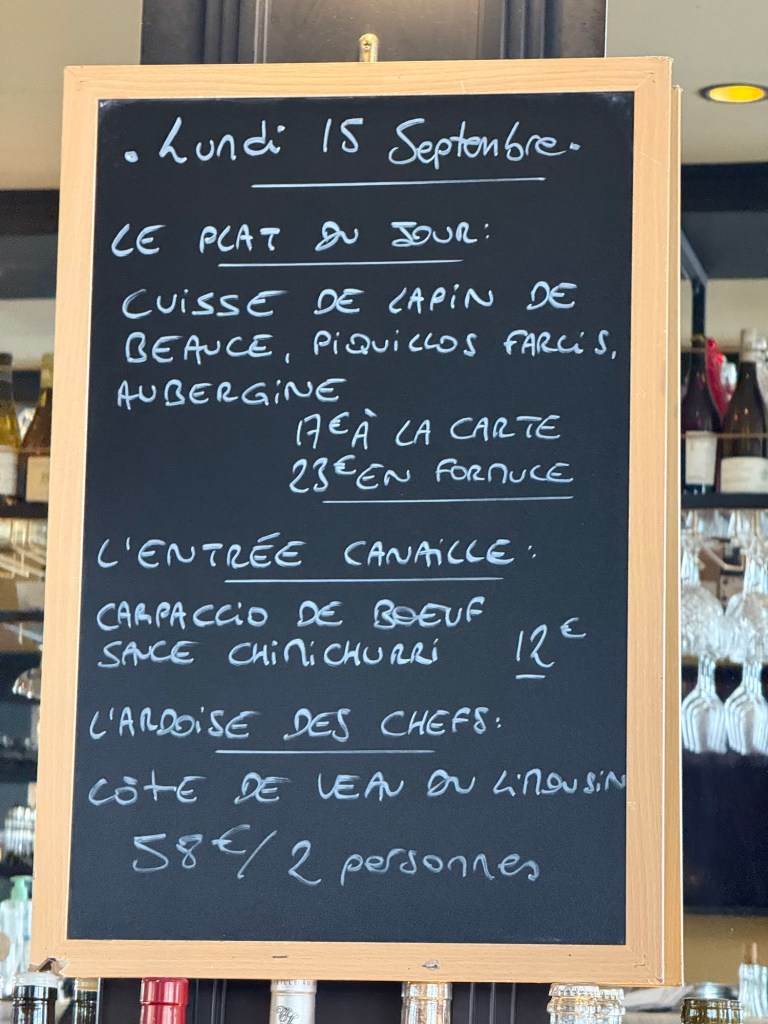 . Lundi 15 Septembre.
LE PLAT DU JOUR:
CUISSE DE LAPIN DE
BEAUCE, PIQUILLOS FARCIS,
AUBERGINE
17€ À LA CARTE
23€ EN FORMULE
L'ENTRÉE CANAILLE:
CARPACCIO DE BOEUF
SAUCE CHIMICHURRI 12€
L'ARDOISE DES CHEFS:
CÔTE DE VEAU DU LIMOUSIN
58€/2 personnes